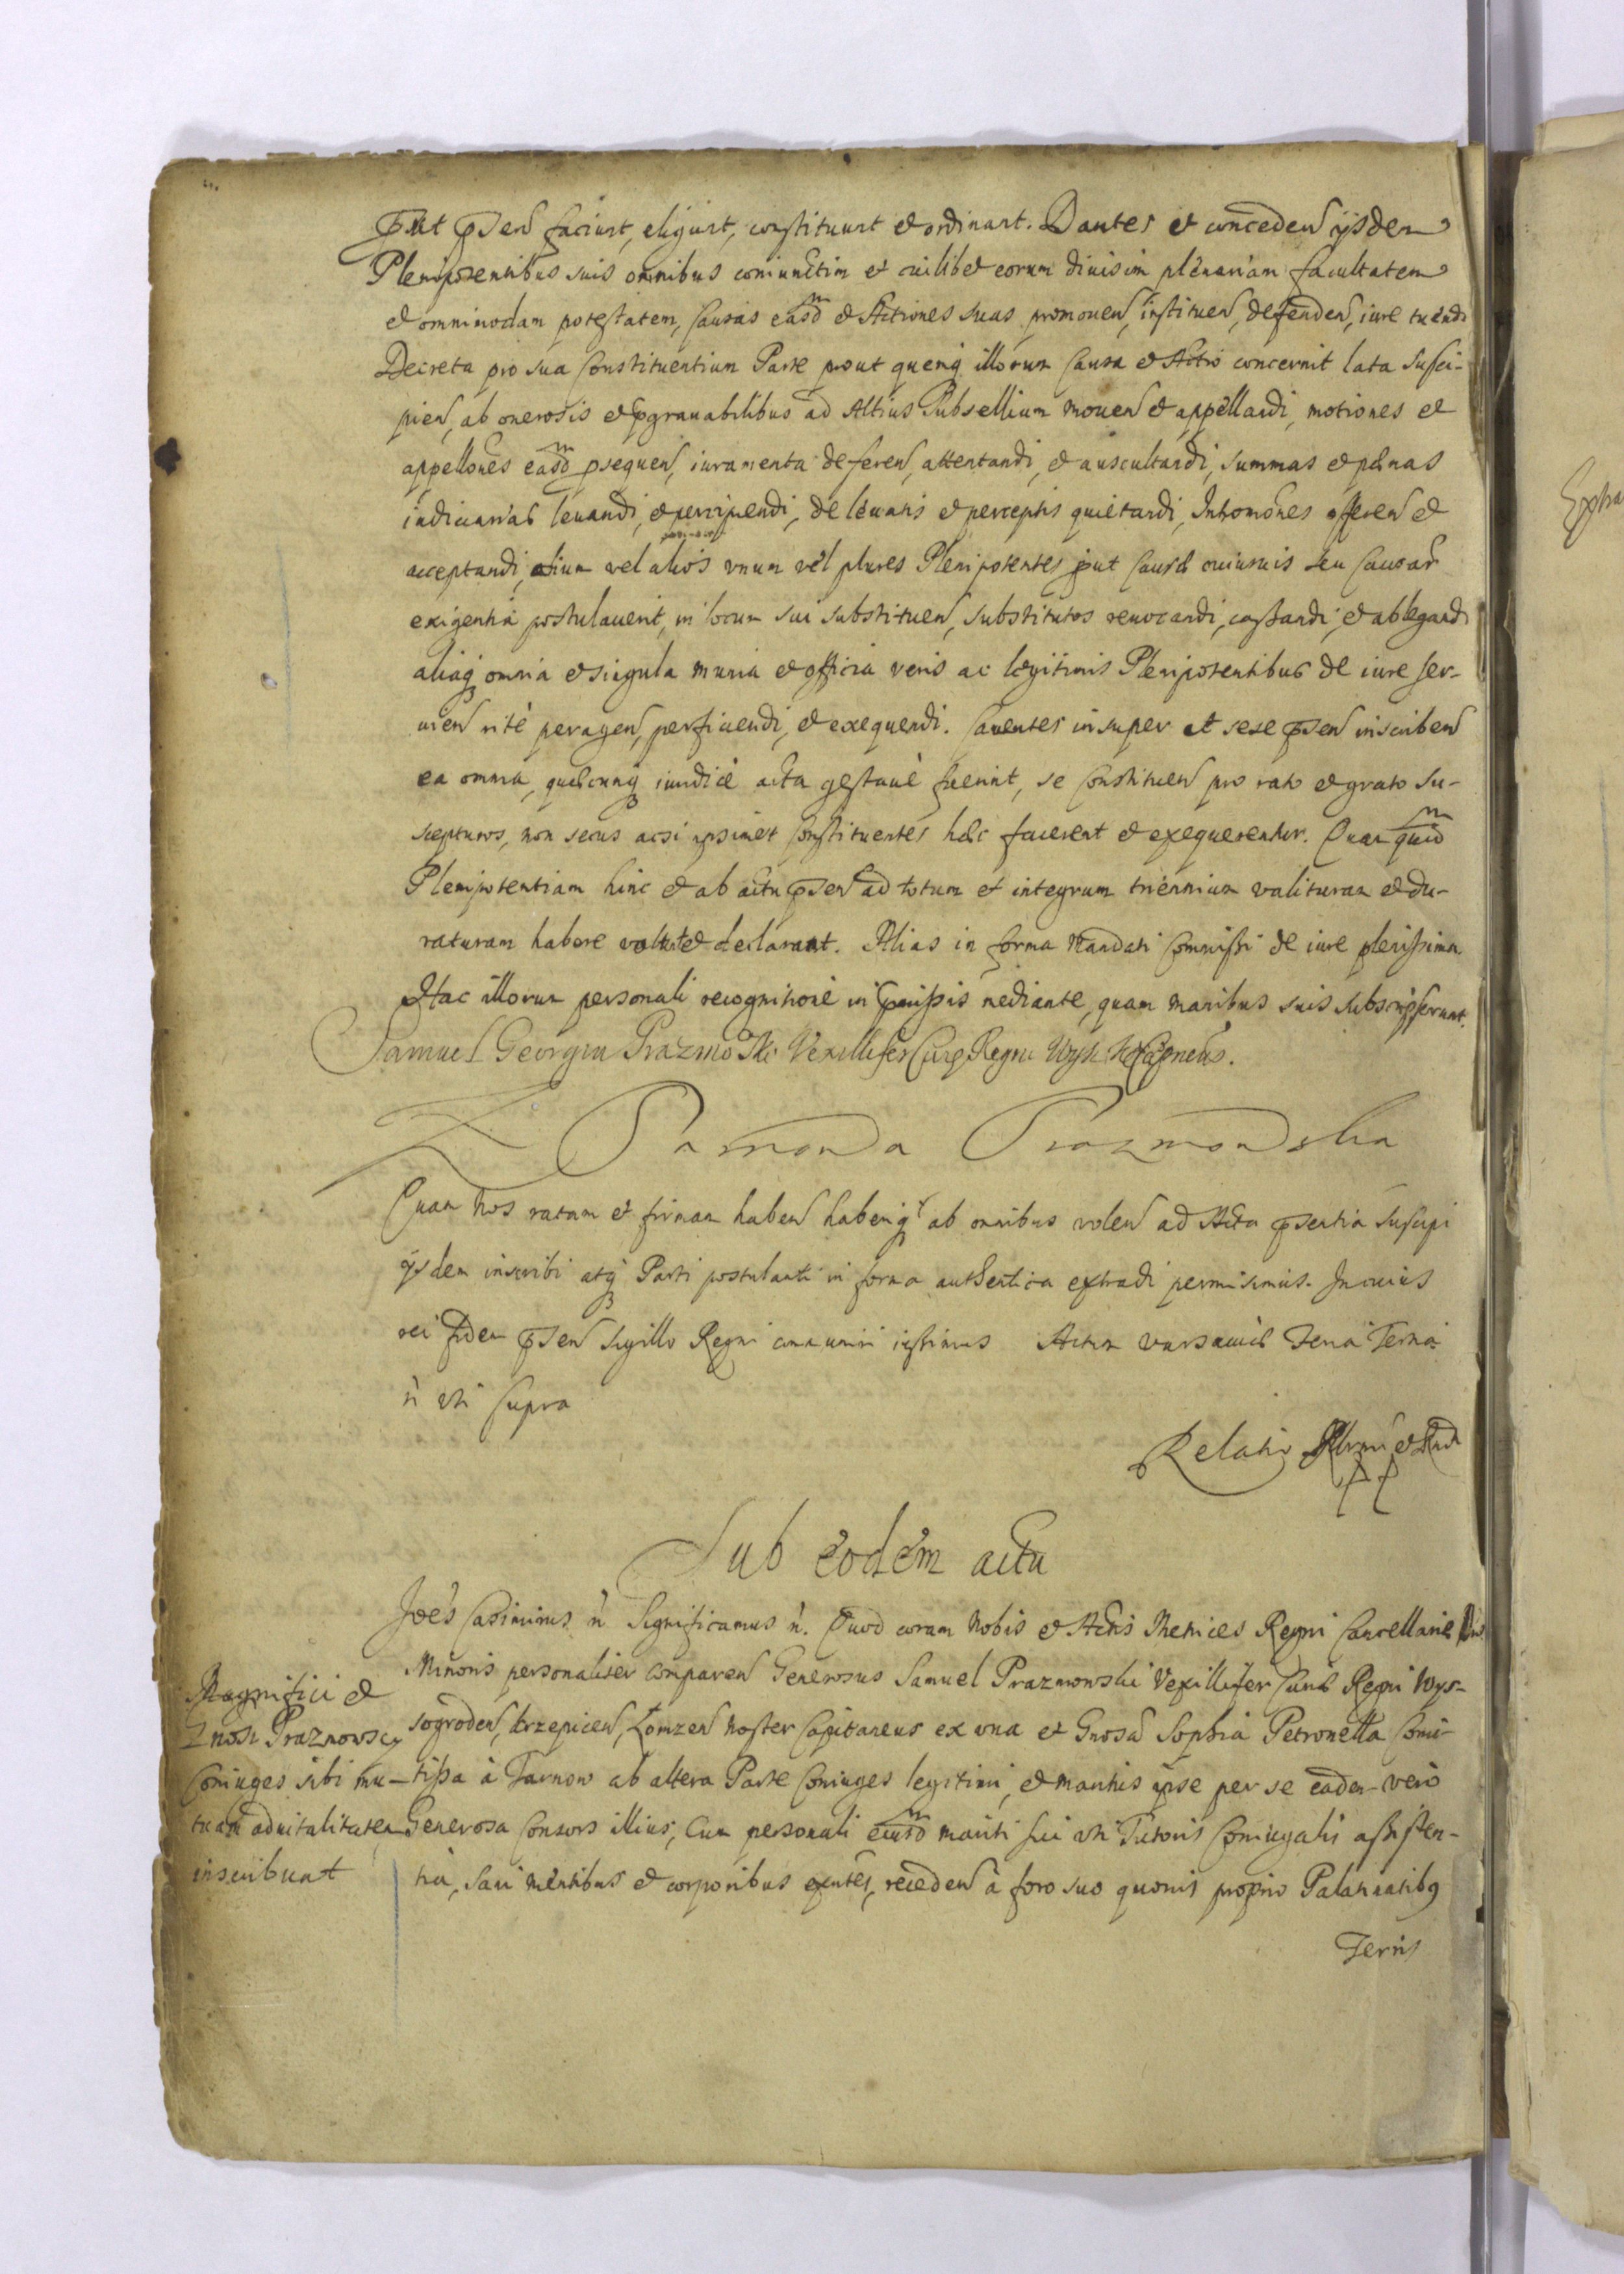 put pšen faciunt, eligunt, constituunt et ordinant. Dantes et conceden ijsdem
Plenipotentibus suis omnibus coniunctim et cuilibet eorum diuisim plenariam facultatem
et omnimodam potestatem, causas easdm et Actiones suas promouen, instituen, defenden, iure tuendi
Decreta pro sua Constituentium Parte prout quemq illorum Causa et Actio concernit lata susci-
pien, ab onerosis et pgrauabilibus ad Altius Subsellium mouen et appellandi, motiones et
appellones easdm psequen, iuramenta deferen, attentandi, et auscultandi, summas et pænas
iudiciarias leuandi, et percipiendi, de leuatis et perceptis quietandi, Inhomones offeren et
acceptandi, alium vel alios vnum vel plures Plenipotentes put causæ cuiusuis seu causar
exigentia postulauerit, in locum sui substituen, substitutos reuocandi, cassandi, et ablegandi
aliaq omnia et singula munia et officia veris ac legitimis Plenipotentibus de iure ser-
uien rité peragen, perficiendi, et exequendi. Cauentes insuper et sese pšen inscriben
ea omnia, quæcunq iuridicè acta gestauè fuerint, se Constituen pro rato et grato su-
scepturos, non secus acsi ipsimet Constituentes hæc facerent et exequerentur. Quam quidm
Plenipotentiam hinc et ab actu pšen ad totum et integrum triennium valituram et du-
raturam habere volunt et declarant. Alias in forma Mandati Commissi de iure plenissima.
Et hac illorum personali recognitione in pmissis mediante, quam manibus suis subscripserunt.
Samuel Georgiu Prazmoski Vexillifer Curiæ Regni
Z Pa Prazmowska
Quam Nos ratam et firmam haben haberiq ab omnibus volen ad Acta pšentia suscipi
ijsdem inscribi atq Parti postulanti in forma authentica extradi permisimus. In cuius
rei fidem pšen sigillo Regni communiri iussimus Actum Varsauiæ Feria Tertia
ñ vti supra
Relatio
Sub eodem actu
Joes Casimirus ñ Significamus ñ. Quod coram Nobis et Actis Metrices Regni Cancellariæ
Minoris personaliter comparen Generosus Samuel Prazmowski Vexillifer Curiæ Regni Wys-
sogroden, Krzepicen, Łomzen Noster Capitaneus ex vna et Gnosa Sophia Petronella Comi-
tissa à Tarnow ab altera Parte Coniuges legitimi, et maritus ipse per se eadem vero
Generosa Consors illius, Cum personali eiusdm mariti sui vti Tutoris Coniugalis assisten-
tia, sani mentibus et corporibus exñtes, receden à foro suo quouis proprio Palatinatibq
Magnifici et
Gnosi Prazmowscy
Coniuges sibi mu-
tuam aduitalitatem
inscribunt
Terris